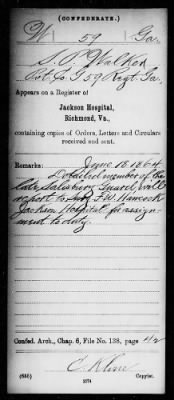 (CONFEDERATE.)
W 59 Ga.
S. P. Walker
Pvt. Co. G 59 Regt. Ga.
Appears on a Register of
Jackson Hospital,
Richmond, Va.,
containing copies of Orders, Letters and Circulars
received and sent.
Remarks: June 18 1864
Detailed member of the
late Salisbury Guard, will
report to F. W. Hancock
Jackson Hospital for assign-
ment to duty.
Confed. Arch., Chap. 6, File No. 138, page 42
C. Kline
(635) Copyist.